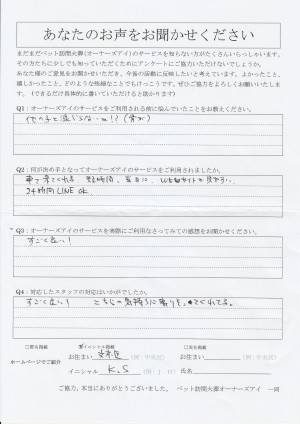 あなたのお声をお聞かせください
まだまだペット訪問火葬(オーナーズアイ)のサービスを知らない方がたくさんいらっしゃいます。
その方たちに少しでも知っていただくためにアンケートにご協力いただけないでしょうか。
あなた様のご意見をお聞かせいただき、今後の活動に反映したいと考えています。よかったこと、
嬉しかったこと、どのような些細なことでもけっこうです。ぜひご協力をよろしくお願いいたしま
す。(できるだけ具体的に書いていただけると助かります)
Q1:オーナーズアイのサービスをご利用される前に悩んでいたことをお教えください。
Q2:何が決め手となってオーナーズアイのサービスをご利用されましたか。
車で来てくれる
24時間LINE OK.
Q3:オーナーズアイのサービスを実際にご利用なさってみての感想をお聞かせください。
すごく良い!
Q4:対応したスタッフの対応はいかがでしたか。
すごく良い! こちらの気持ちに寄りそってくれてる。
□匿名掲載 イニシャル掲載 □実名掲載
ホームページでご紹介
お住まい (例:中央区) お住まい (例:中央区)
イニシャル K.S (例:J・H) 氏名
ご協力、本当にありがとうございました。 ペット訪問火葬オーナーズアイ 一同